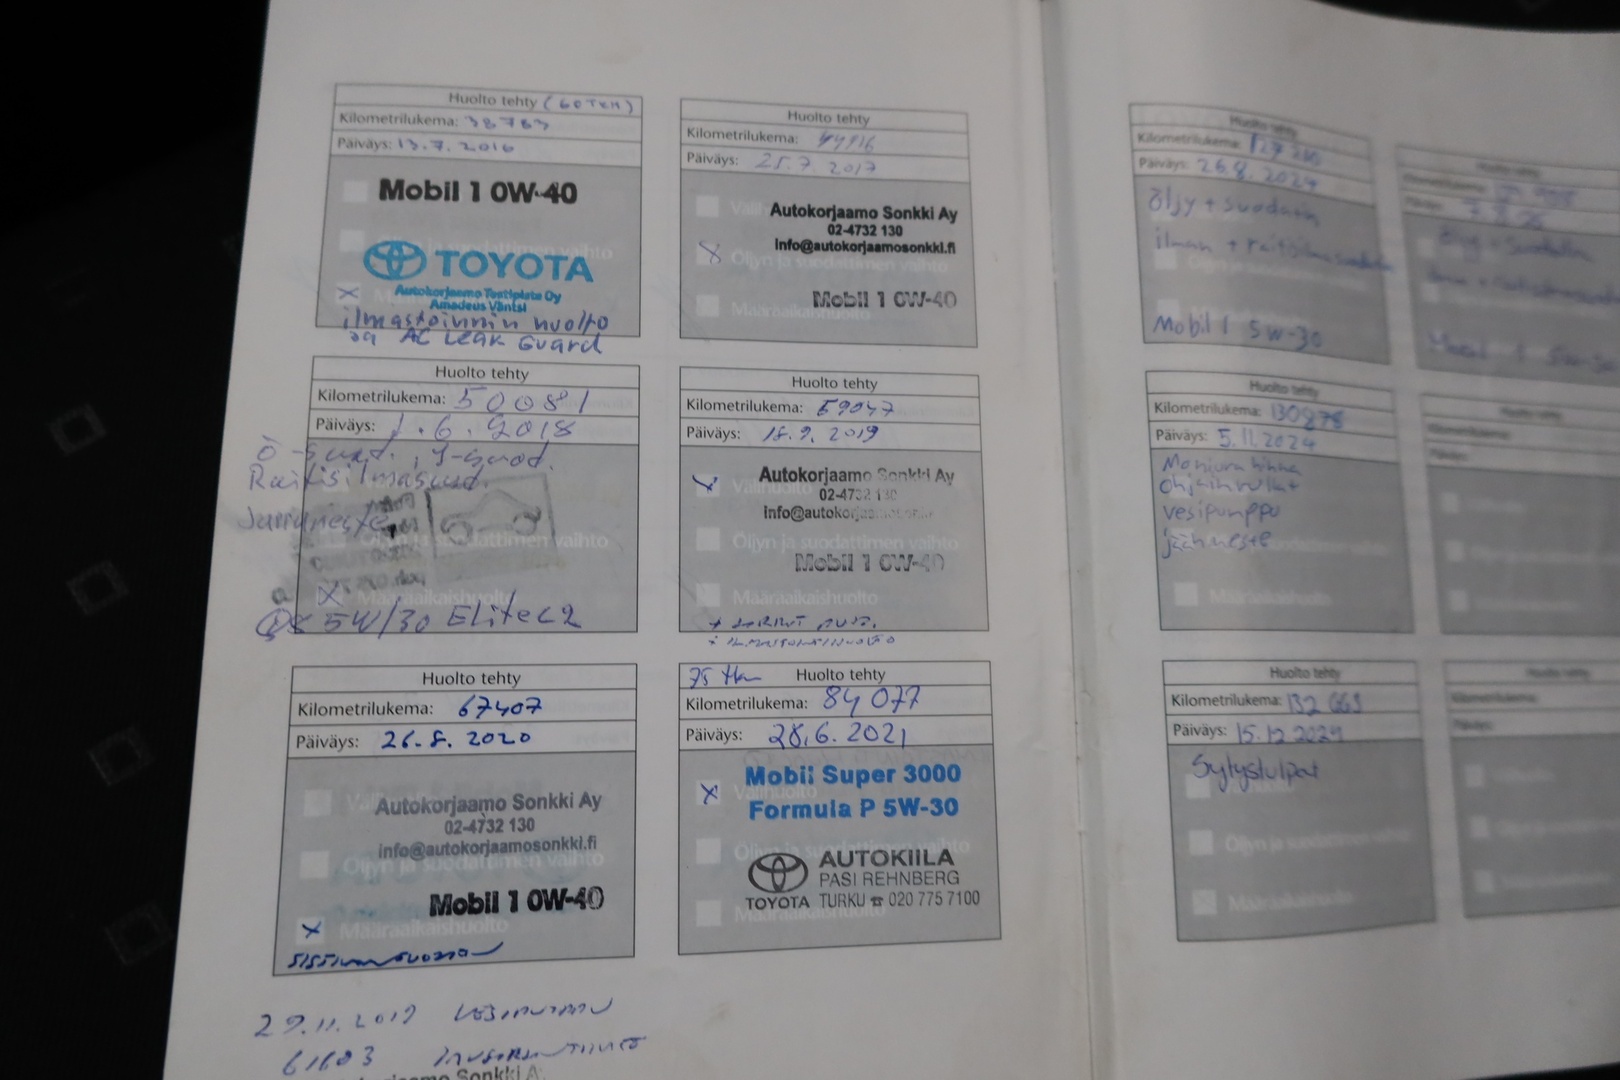 Huolto tehty (60 TKM)
Kilometrilukema: 38783
Päiväys: 13.7.2016
Mobil 1 0W-40
TOYOTA
Autokorjaamo Testiplate Oy
Amadeus Väntsi
ilmastoinnin huolto
ja AC Leak Guard
Huolto tehty
Kilometrilukema:
Päiväys: 25.7.2017
Autokorjaamo Sonkki Ay
02-4732 130
info@autokorjaamosonkki.fi
Öljyn ja suodattimen vaihto
Mobil 1 0W-40
Määräaikaishuolto
Huolto tehty
Kilometrilukema: 50081
Päiväys: 1.6.2018
Ö-suod.,
Raitisilmasuod.
Jarruneste
Öljyn ja suodattimen vaihto
Määräaikaishuolto
5W/30 Elite C2
Huolto tehty
Kilometrilukema: 59047
Päiväys: 18.9.2019
Autokorjaamo Sonkki Ay
Välihuolto
02-4732 130
info@autokorjaamosonkki.fi
Öljyn ja suodattimen vaihto
Mobil 1 0W-40
Määräaikaishuolto
Huolto tehty
Kilometrilukema: 67407
Päiväys: 26.8.2020
Autokorjaamo Sonkki Ay
02-4732 130
info@autokorjaamosonkki.fi
Öljyn ja suodattimen vaihto
Mobil 1 0W-40
Määräaikaishuolto
75 tkm Huolto tehty
Kilometrilukema: 84 077
Päiväys: 28.6.2021
Mobil Super 3000
Välihuolto
Formula P 5W-30
Öljyn ja suodattimen vaihto
AUTOKIILA
PASI REHNBERG
TOYOTA TURKU ☎ 020 775 7100
Määräaikaishuolto
29.11.2019
61603
Autokorjaamo Sonkki A
Huolto tehty
Kilometrilukema:
Päiväys: 26.8.2024
Öljy + suodatin
ilman + raitisilmasuodatin
Öljyn ja suodattimen vaihto
Mobil 1 5W-30
Huolto tehty
Kilometrilukema: 130878
Päiväys: 5.11.2024
Moniurahihna
ohjainrullat
vesipumppu
jäähneste
Määräaikaishuolto
Huolto tehty
Kilometrilukema: 132 663
Päiväys: 15.12.2024
Sytystulpat
Öljyn ja suodattimen vaihto
Määräaikaishuolto
Huolto tehty
Mobil 1 5W-30
Huolto tehty
Kilometrilukema:
Päiväys:
Huolto tehty
Kilometrilukema:
Päiväys: